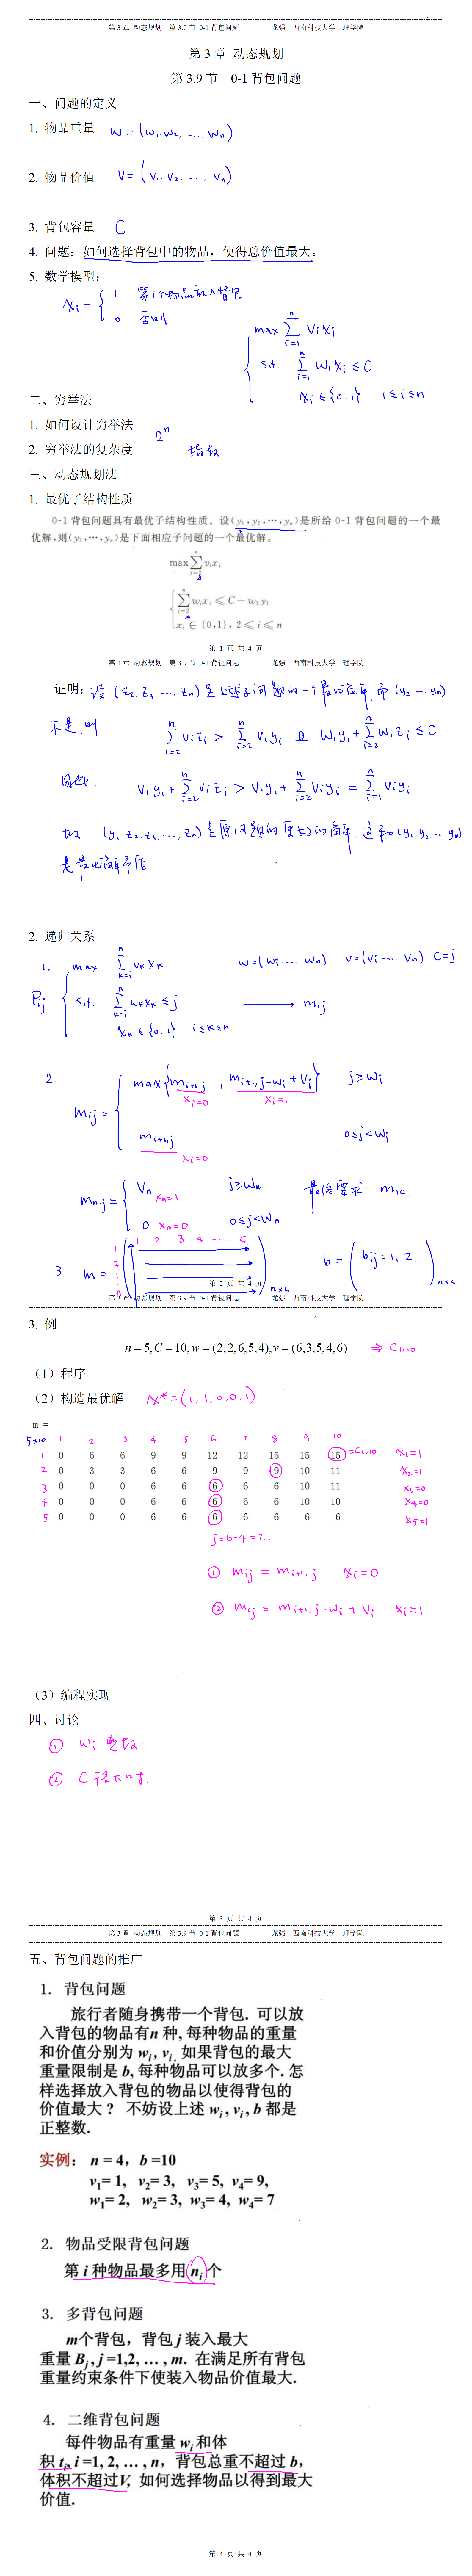 第 3 章 动态规划 第 3.9 节 0-1 背包问题 龙强 西南科技大学 理学院
第 3 章 动态规划
第 3.9 节 0-1 背包问题
一、问题的定义
1. 物品重量 w = (w₁, w₂, ... wₙ)
2. 物品价值 V = (v₁, v₂, ... vₙ)
3. 背包容量 C
4. 问题：如何选择背包中的物品，使得总价值最大。
5. 数学模型：
xᵢ = { 1 第i个物品放入背包
0 否则
max ∑ᵢ₌₁ⁿ vᵢxᵢ
s.t. ∑ᵢ₌₁ⁿ wᵢxᵢ ≤ C
xᵢ ∈ {0,1} 1≤i≤n
二、穷举法
1. 如何设计穷举法
2ⁿ
2. 穷举法的复杂度 指数
三、动态规划法
1. 最优子结构性质
0-1 背包问题具有最优子结构性质。设(y₁,y₂,…,yₙ)是所给 0-1 背包问题的一个最
优解，则(y₂,…,yₙ)是下面相应子问题的一个最优解。
max ∑ᵢ₌₂ⁿ vᵢxᵢ
{ ∑ᵢ₌₂ⁿ wᵢxᵢ ≤ C − w₁y₁
xᵢ ∈ {0,1}, 2 ≤ i ≤ n
第 1 页 共 4 页
第 3 章 动态规划 第 3.9 节 0-1 背包问题 龙强 西南科技大学 理学院
证明：设 (z₂, z₃, ... zₙ) 是上述子问题的一个最优解，而 (y₂, ... yₙ)
不是，则 ∑ᵢ₌₂ⁿ vᵢzᵢ > ∑ᵢ₌₂ⁿ vᵢyᵢ 且 w₁y₁ + ∑ᵢ₌₂ⁿ wᵢzᵢ ≤ C
因此 v₁y₁ + ∑ᵢ₌₂ⁿ vᵢzᵢ > v₁y₁ + ∑ᵢ₌₂ⁿ vᵢyᵢ = ∑ᵢ₌₁ⁿ vᵢyᵢ
故 (y₁, z₂, z₃, ..., zₙ) 是原问题的更好的解，这和 (y₁, y₂, ... yₙ)
是最优解矛盾
2. 递归关系
1. Pᵢⱼ { max ∑ₖ₌ᵢⁿ vₖxₖ w=(wᵢ ... wₙ) v=(vᵢ ... vₙ) C=j
s.t. ∑ₖ₌ᵢⁿ wₖxₖ ≤ j → mᵢⱼ
xₖ ∈ {0,1} i≤k≤n
2. mᵢⱼ = { max{mᵢ₊₁,ⱼ , mᵢ₊₁,ⱼ₋wᵢ + vᵢ} j ≥ wᵢ
xᵢ=0 xᵢ=1
mᵢ₊₁,ⱼ 0≤j<wᵢ
xᵢ=0
mₙ,ⱼ = { vₙ xₙ=1 j≥wₙ 最终要求 m₁c
0 xₙ=0 0≤j<wₙ
1 2 3 4 ···· C
1
2
⋮
n
3 m = ( )ₙₓc b = ( bᵢⱼ=1, 2. )ₙₓc
第 2 页 共 4 页
第 3 章 动态规划 第 3.9 节 0-1 背包问题 龙强 西南科技大学 理学院
3. 例
n = 5, C = 10, w = (2,2,6,5,4), v = (6,3,5,4,6) ⇒ C₁,₁₀
（1）程序
（2）构造最优解 X* = (1, 1, 0, 0, 1)
m =
5×10 1 2 3 4 5 6 7 8 9 10
1 0 6 6 9 9 12 12 15 15 15 =C₁,₁₀ x₁=1
2 0 3 3 6 6 9 9 9 10 11 x₂=1
3 0 0 0 6 6 6 6 6 10 11 x₃=0
4 0 0 0 6 6 6 6 6 10 10 x₄=0
5 0 0 0 6 6 6 6 6 6 6 x₅=1
j=6-4=2
① mᵢⱼ = mᵢ₊₁,ⱼ xᵢ=0
② mᵢⱼ = mᵢ₊₁,ⱼ₋wᵢ + vᵢ xᵢ=1
（3）编程实现
四、讨论
① wᵢ 整数
② C 很大时.
第 3 页 共 4 页
第 3 章 动态规划 第 3.9 节 0-1 背包问题 龙强 西南科技大学 理学院
五、背包问题的推广
1. 背包问题
旅行者随身携带一个背包. 可以放
入背包的物品有n 种, 每种物品的重量
和价值分别为 wᵢ, vᵢ. 如果背包的最大
重量限制是 b, 每种物品可以放多个. 怎
样选择放入背包的物品以使得背包的
价值最大？ 不妨设上述 wᵢ, vᵢ, b 都是
正整数.
实例： n = 4，b =10
v₁= 1, v₂= 3, v₃= 5, v₄= 9,
w₁= 2, w₂= 3, w₃= 4, w₄= 7
2. 物品受限背包问题
第 i 种物品最多用 nᵢ 个
3. 多背包问题
m个背包，背包 j 装入最大
重量 Bⱼ, j =1,2, … , m. 在满足所有背包
重量约束条件下使装入物品价值最大.
4. 二维背包问题
每件物品有重量 wᵢ 和体
积 tᵢ, i =1, 2, … , n，背包总重不超过 b，
体积不超过V, 如何选择物品以得到最大
价值.
第 4 页 共 4 页